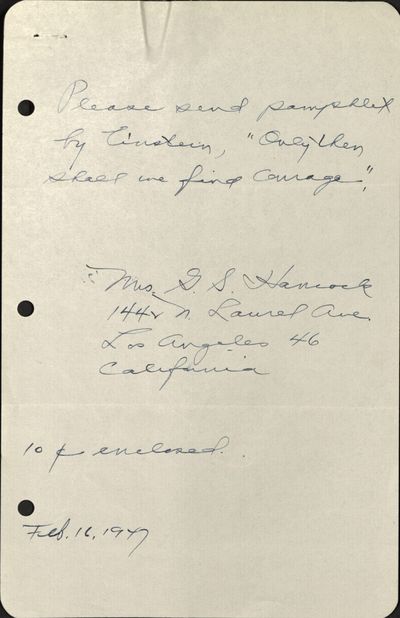 Please send pamphlet
by Einstein, "Only then
shall we find Courage".
Mrs. G. S. Hancock
1442 N. Laurel Ave.
Los Angeles 46
California
10 ¢ enclosed.
Feb. 16, 1947